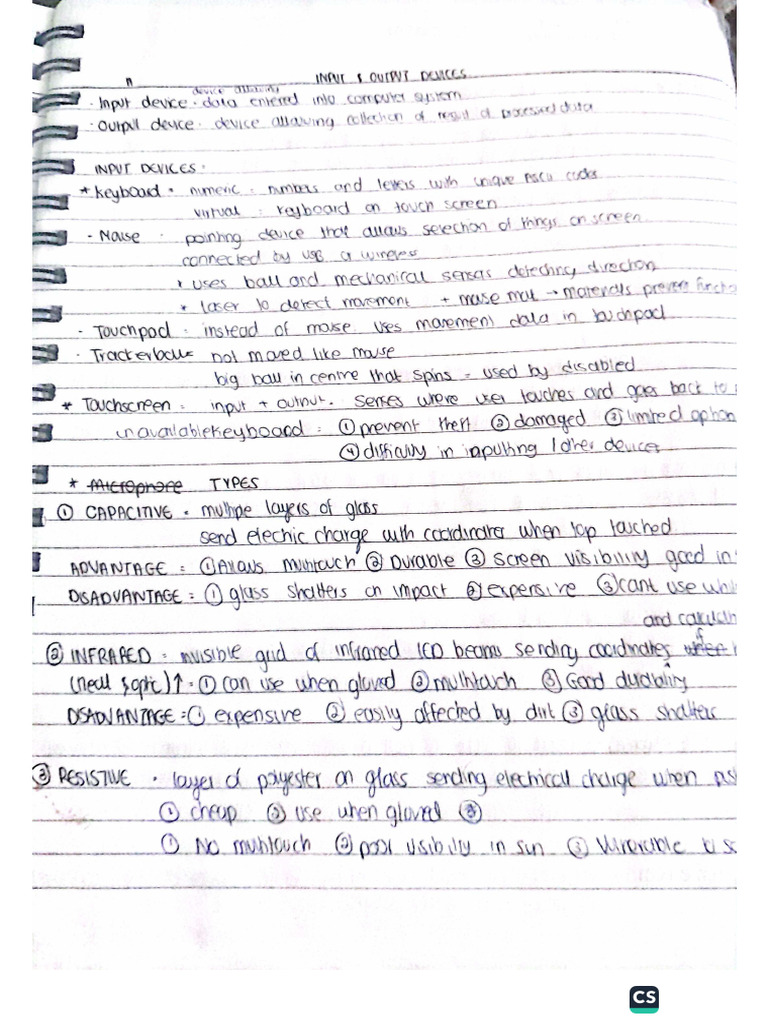 INPUT & OUTPUT DEVICES
device allowing
· Input device · data entered into computer system
· Output device · device allowing collection of result of processed data
INPUT DEVICES ·
* Keyboard · numeric : numbers and levers with unique ASCII codes
virtual : keyboard on touch screen
- Mouse : pointing device that allows selection of things on screen
connected by USB or wireless
* uses ball and mechanical sensors detecting direction
* laser to detect movement + mouse mat → materials prevent
- Touchpad : instead of mouse uses movement data in touchpad
· Trackerballs not moved like mouse
big ball in centre that spins = used by disabled
* Touchscreen : input + output. Senses where user touches and goes back to
unavailable keyboard : ① prevent theft ② damaged ③ limited option
④ difficulty in inputting / other devices
* Microphone TYPES
① CAPACITIVE = multiple layers of glass
send electric charge with coordinates when top touched
ADVANTAGE : ① Allows multitouch ② Durable ③ screen visibility good in
DISADVANTAGE : ① glass shatters on impact ② expensive ③ cant use
and
② INFRARED : invisible grid of infrared LED beams sending coordinates
(heat & optic) ↑ = ① can use when gloved ② multitouch ③ Good durability
DISADVANTAGE : ① expensive ② easily affected by dirt ③ glass shatters
③ RESISTIVE · layer of polyester on glass sending electrical charge when
① cheap ② use when gloved ③
① No multitouch ② poor visibility in sun ③ Vulnerable to
CS